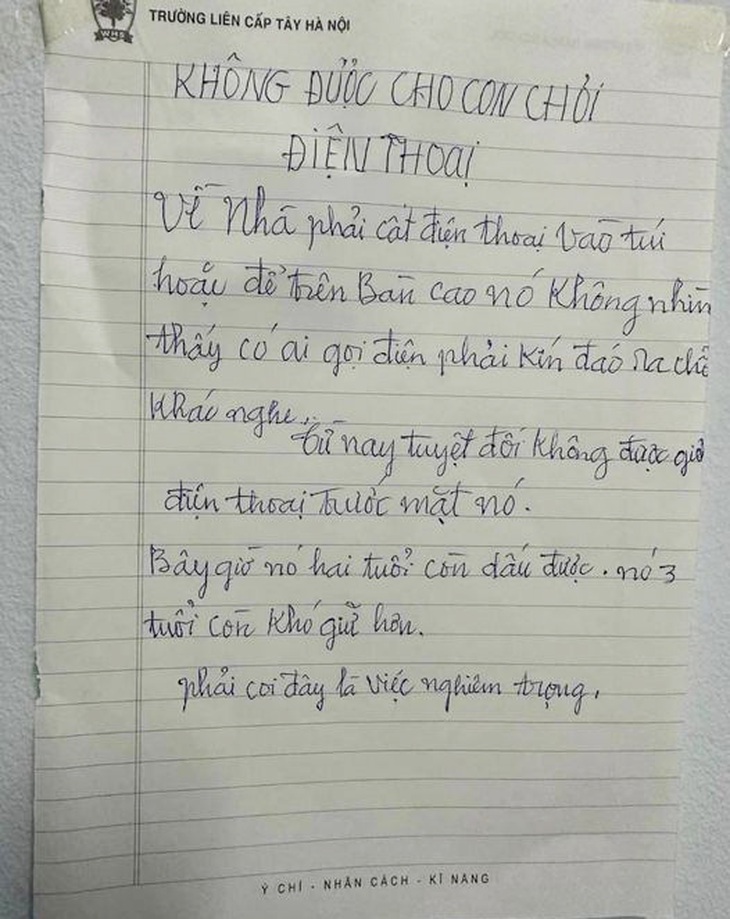 WHS
TRƯỜNG LIÊN CẤP TÂY HÀ NỘI
KHÔNG ĐƯỢC CHO CON CHƠI
ĐIỆN THOẠI
Về Nhà phải cất điện thoại vào túi
hoặc để trên Bàn cao nó không nhìn
thấy có ai gọi điện phải kín đáo ra chỗ
khác nghe..
từ nay tuyệt đối không được giơ
điện thoại trước mặt nó.
Bây giờ nó hai tuổi còn dấu được. nó 3
tuổi còn khó giữ hơn.
phải coi đây là việc nghiêm trọng.
Ý CHÍ - NHÂN CÁCH - KĨ NĂNG